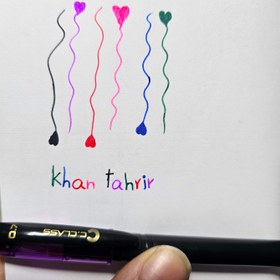 khan tahrir
C.CLASS